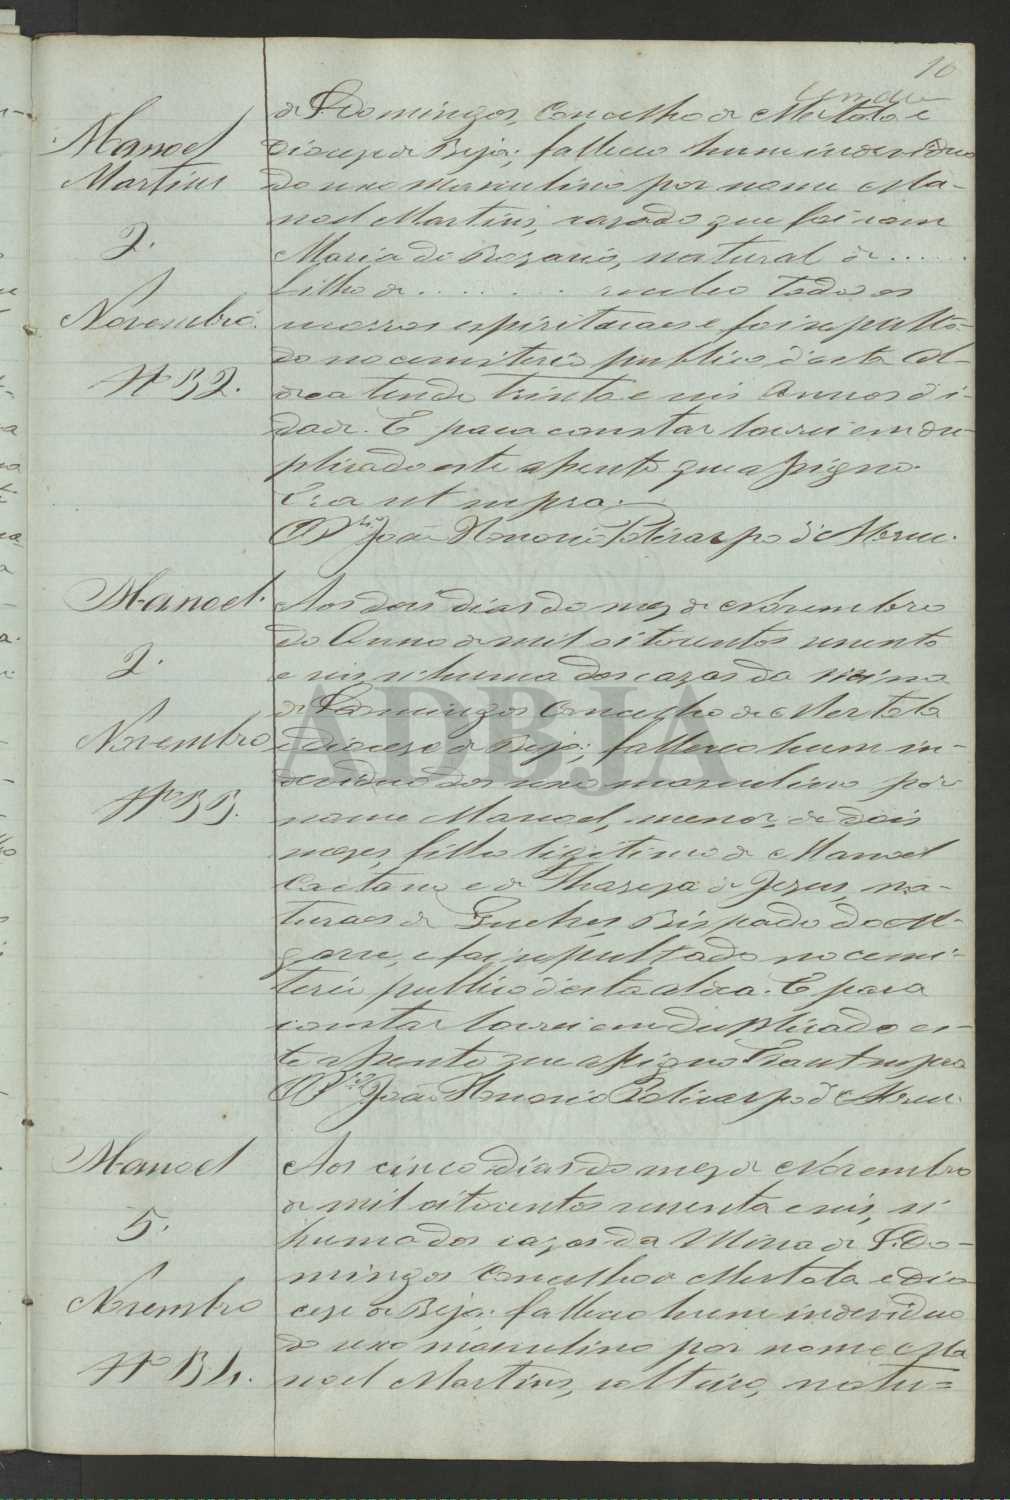 10
de S. Domingos, Concelho de Mertola e
Manoel
Diocese de Beja; falleceo hum individuo
Martins
do sexo masculino por nome Ma-
noel Martins, cazado que foi com
2.
Maria do Rozario, natural de......
filho de......... recebeo todos os
Novembro.
nossos espirituaes e foi sepulta-
do no cemiterio publico d'esta al-
Nº 32.
dea tendo trinta e seis Annos d'i-
dade. E para constar lavrei em du-
plicado este assento que assigno.
Era ut supra.
O P.e João Honorio Policarpo d'Abreu.
Manoel.
Aos dois dias do mez de Novembro
do Anno de mil oitocentos secenta
2.
e seis, n'huma das cazas da Mina
de S. Domingos Concelho de Mertola
Novembro
e Dioceze de Beja; falleceo hum in-
dividuo do sexo masculino por
Nº 33.
nome Manoel, menor, de dois
mezes, filho legitimo de Manoel
Caetano e de Thereza de Jezus, na-
turaes de Bispado do Al-
garve, e foi sepultado no cemi-
terio publico d'esta aldea. E para
constar lavrei em duplicado es-
te assento que assigno Era ut supra
O P.e João Honorio Policarpo d'Abreu.
Manoel
Aos cinco dias do mez de Novembro
de mil oitocentos secenta e seis, n'
5.
huma das cazas da Mina de S. Do-
mingos Concelho de Mertola e Dio
Novembro
ceze de Beja; falleceo hum individuo
do sexo masculino por nome Ma
Nº 34.
noel Martins, solteiro, natu=
ADBJA